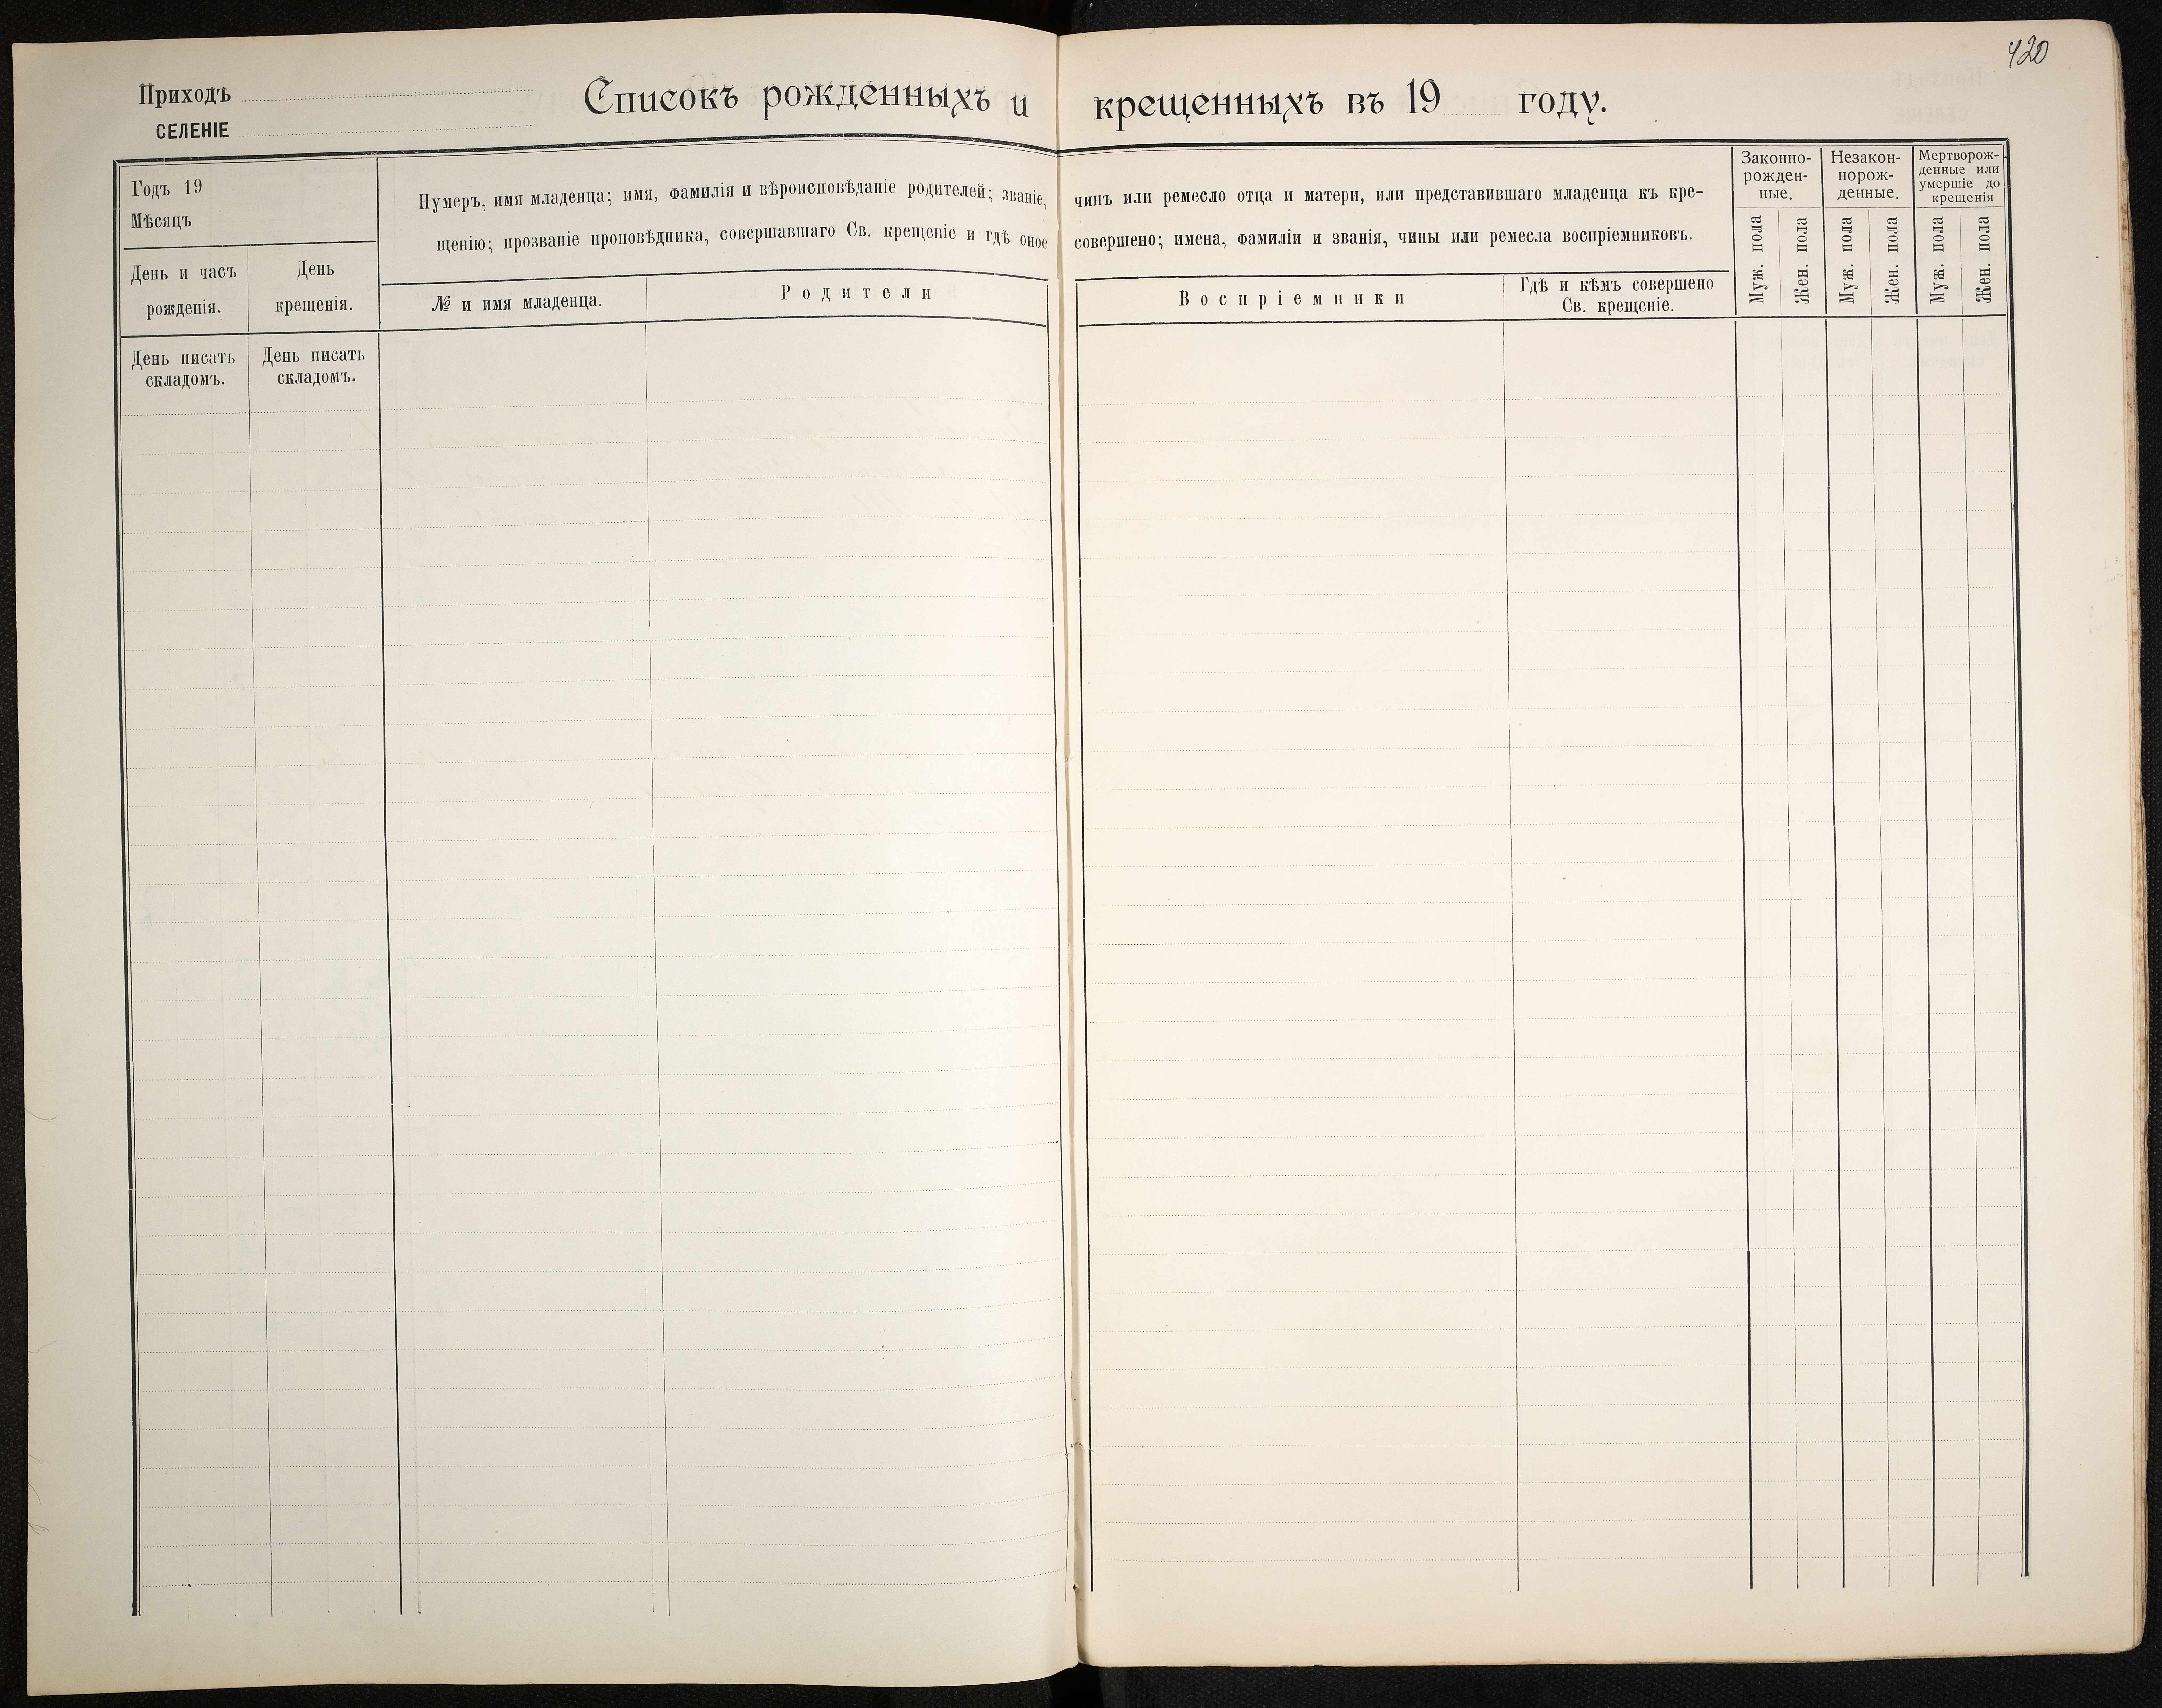 420
Приходъ
СЕЛЕНІЕ
Списокъ рожденныхъ и крещенныхъ въ 19 году.
Годъ 19
Мѣсяцъ
День и часъ
рожденія.
День
крещенія.
Нумеръ, имя младенца; имя, фамилія и вѣроисповѣданіе родителей; званіе, чинъ или ремесло отца и матери, или представившаго младенца къ кре-
щенію; прозваніе проповѣдника, совершавшаго Св. крещеніе и гдѣ оное совершено; имена, фамиліи и званія, чины или ремесла воспріемниковъ.
№ и имя младенца.
Родители
Воспріемники
Гдѣ и кѣмъ совершено
Св. крещеніе.
Законно-
рожден-
ные.
Незакон-
норож-
денные.
Мертворож-
денные или
умершіе до
крещенія
Муж. пола
Жен. пола
Муж. пола
Жен. пола
Муж. пола
Жен. пола
День писать
складомъ.
День писать
складомъ.